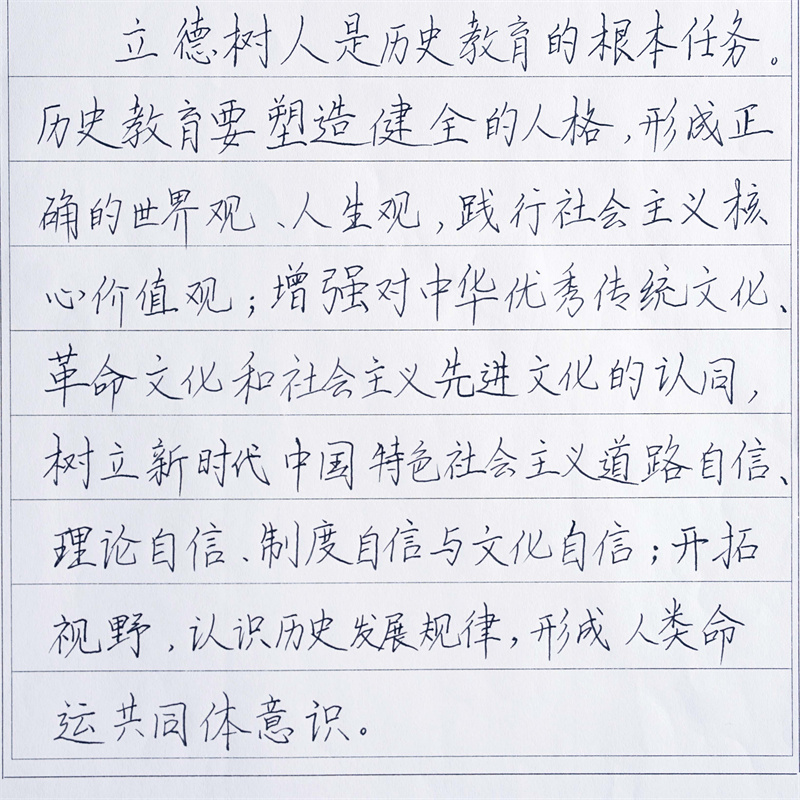 立德树人是历史教育的根本任务。
历史教育要塑造健全的人格，形成正
确的世界观、人生观，践行社会主义核
心价值观；增强对中华优秀传统文化、
革命文化和社会主义先进文化的认同，
树立新时代中国特色社会主义道路自信、
理论自信、制度自信与文化自信；开拓
视野，认识历史发展规律，形成人类命
运共同体意识。